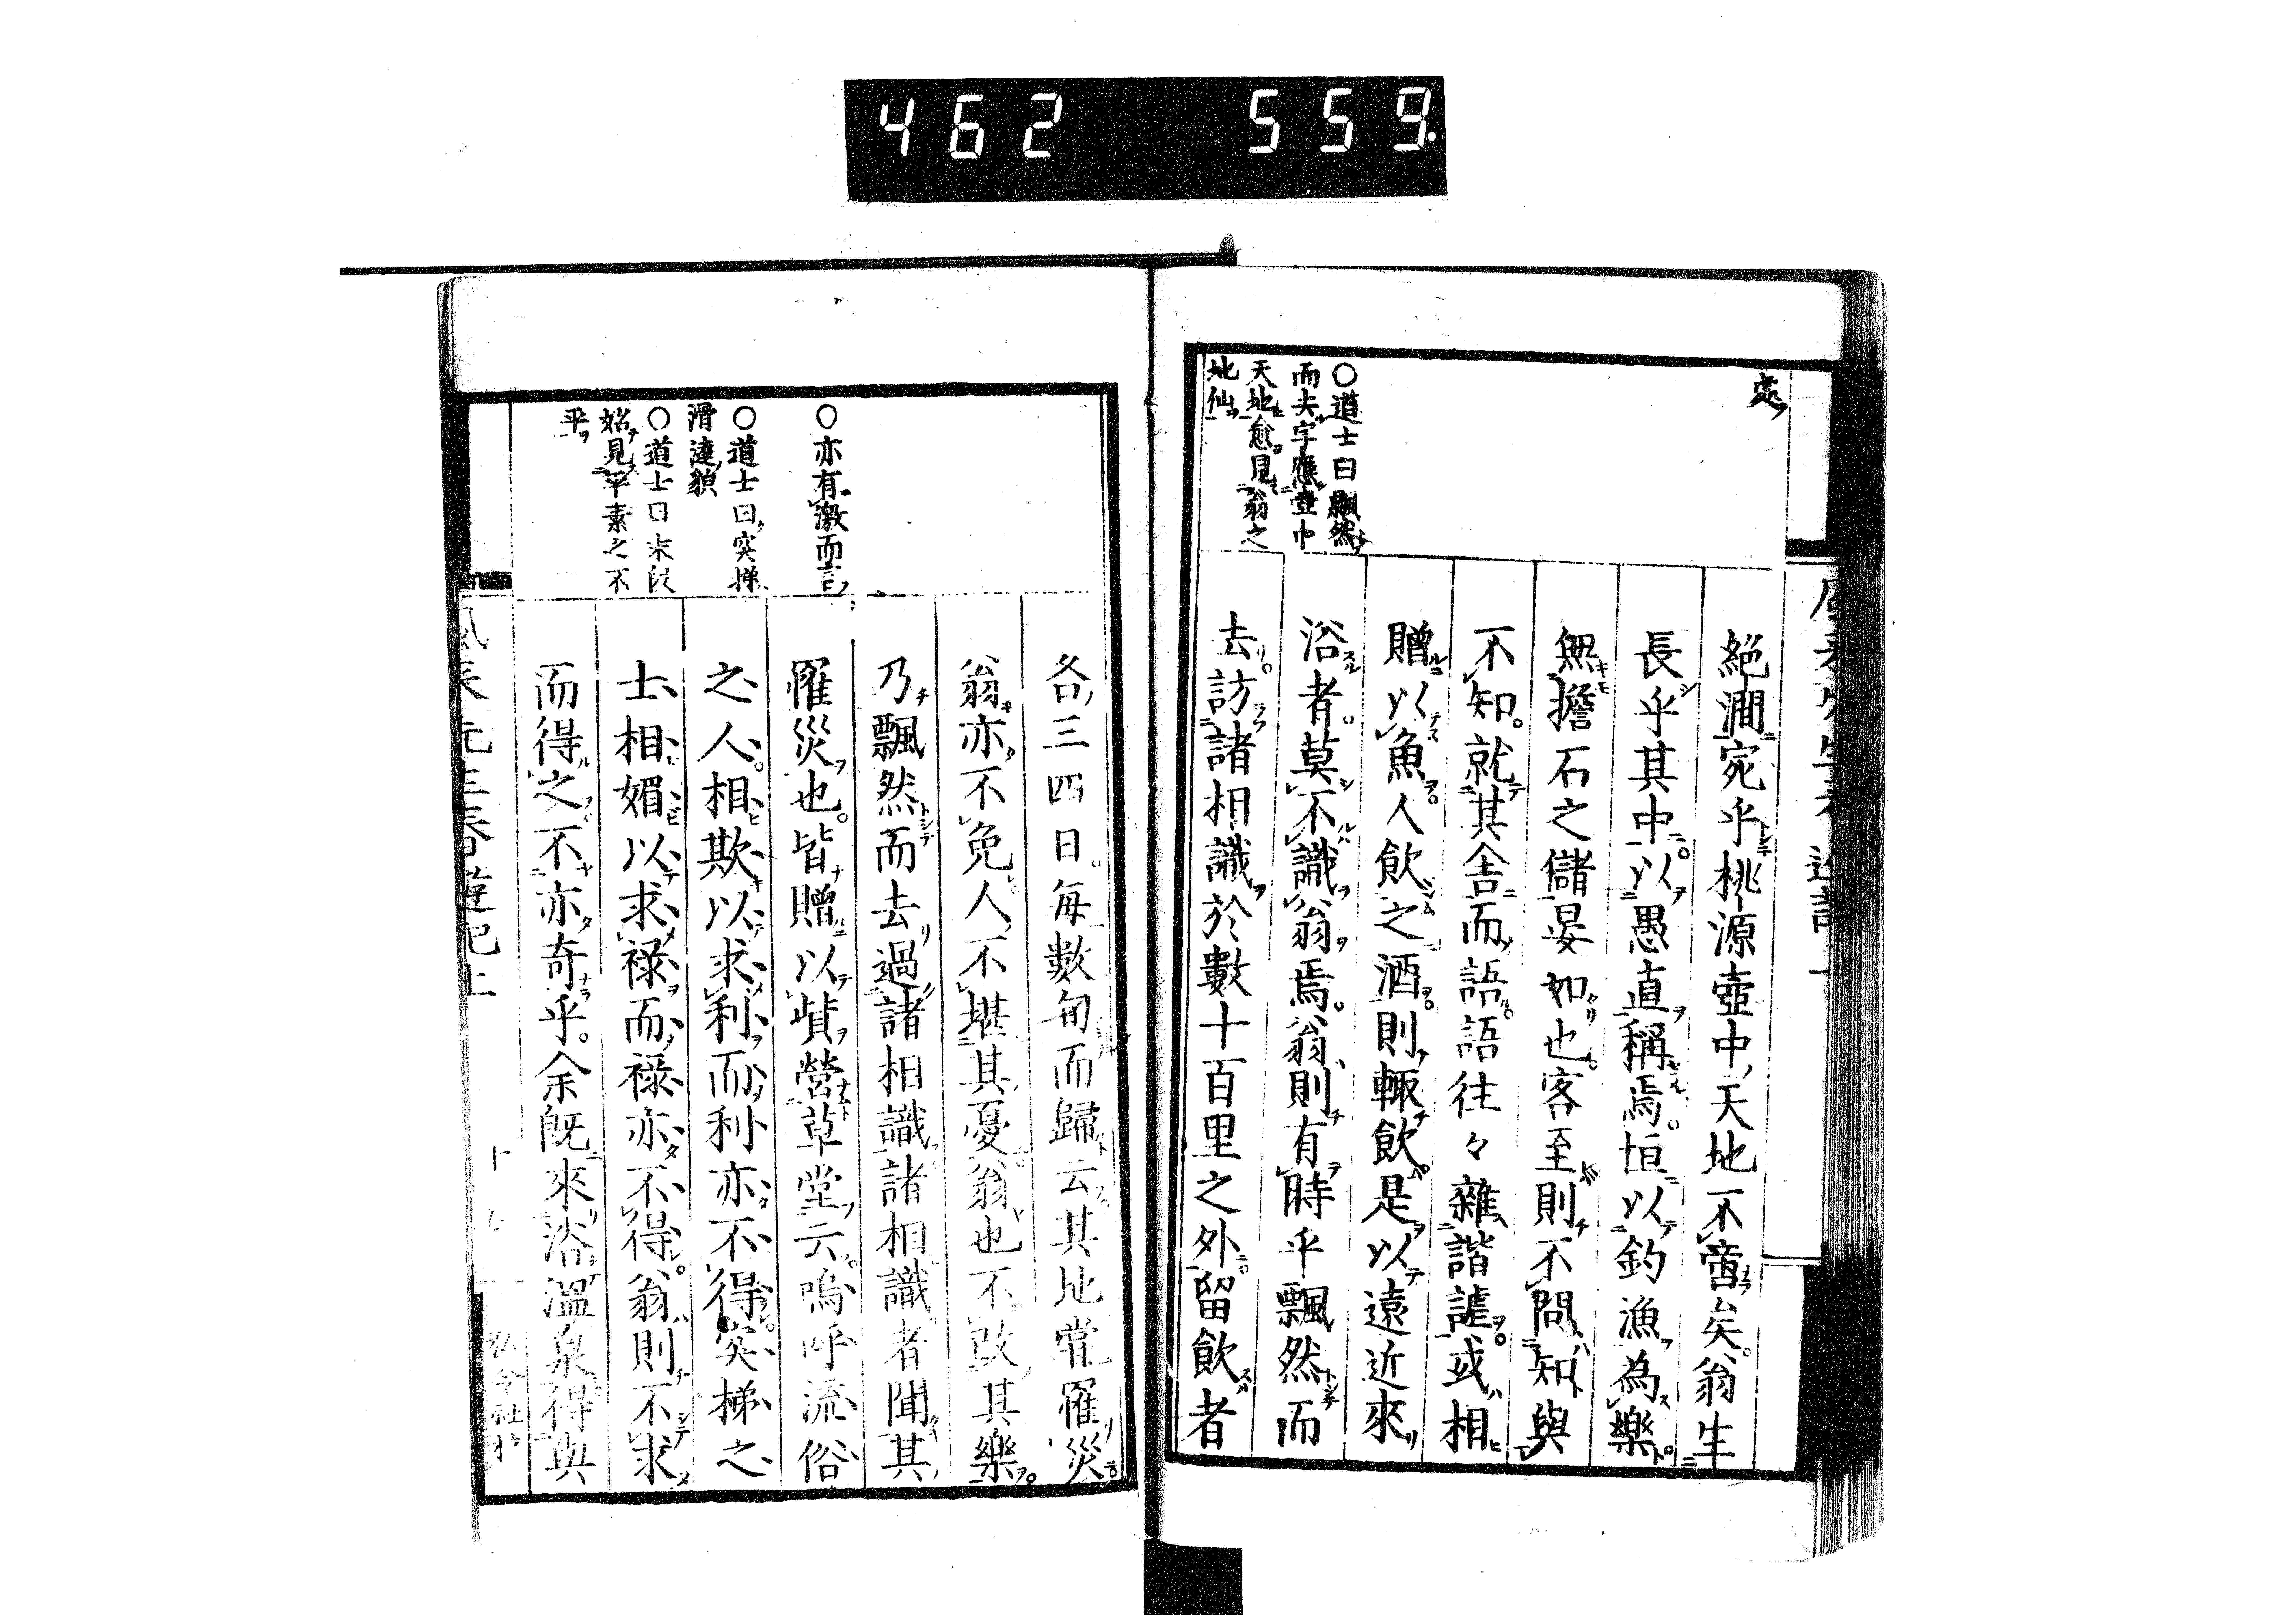 462 559.
處
○道士曰飄然
而去字應壺中
天地愈見翁之
地仙
絕澗宛乎桃源壺中天地不啻矣翁生
長乎其中以愚直稱焉恒以釣漁為樂
無擔石之儲晏如也客至則不問知與
不知就其舍而語語往々雜諧謔或相
贈以魚人飲之酒則輙飲是以遠近來
浴者莫不識翁焉翁則有時乎飄然而
去訪諸相識於數十百里之外留飲者
○亦有激而言
○道士曰突梯
滑達貌
○道士曰末段
始見平素之不
平
各三四日每數旬而歸云其地常罹災
翁亦不免人不堪其憂翁也不改其樂
乃飄然而去過諸相識諸相識者聞其
罹災也皆贈以貲營草堂云嗚呼流俗
之人相欺以求利而利亦不得突梯之
士相媚以求祿而祿亦不得翁則不求
而得之不亦奇乎余既來浴溫泉得與